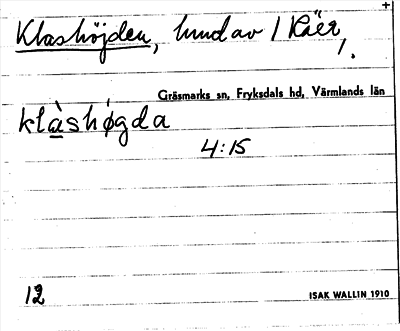 +
Klashöjden, hmd av 1 Råer,
1.
Gräsmarks sn, Fryksdals hd, Värmlands län
klàshǿgda
4:15
12
ISAK WALLIN 1910